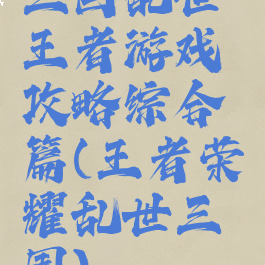 三国乱世
王者游戏
攻略综合
篇(王者荣
耀乱世三
国)